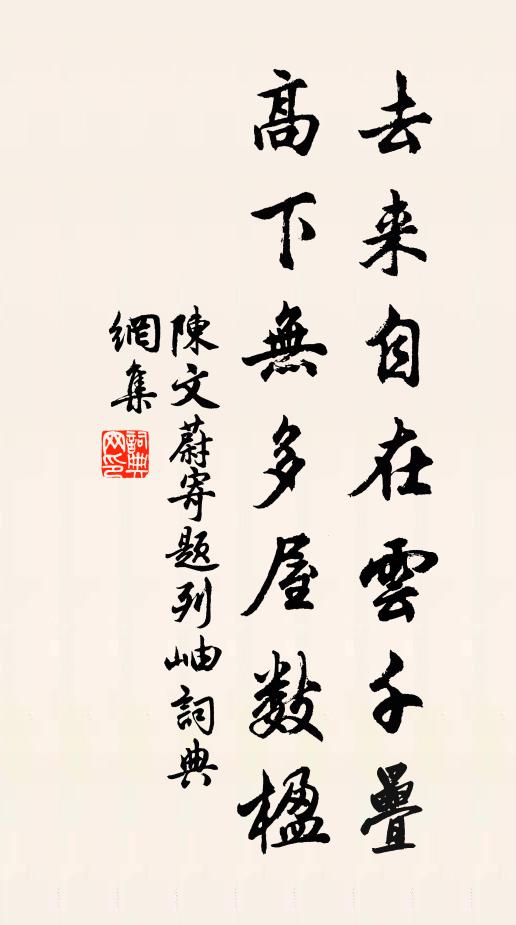 去来自在雲千疊
高下無多屋數楹
陳文蔚寄題列岫詞典
網集
詞典網印